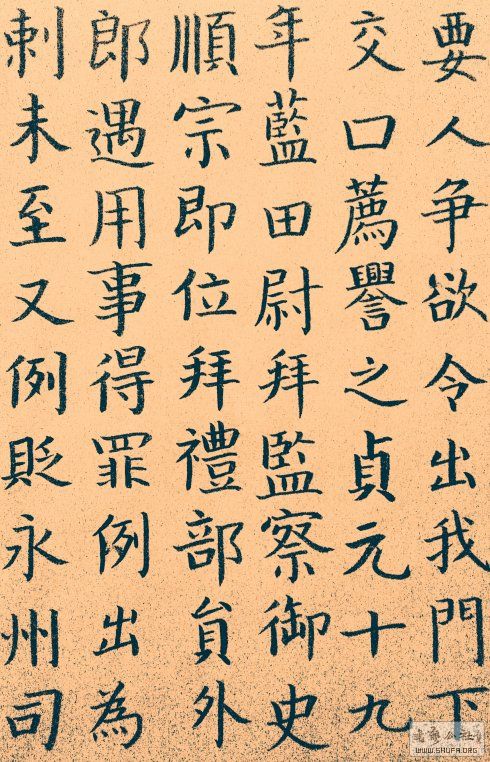 要人争欲令出我門下
交口薦譽之貞元十九
年藍田尉拜監察御史
順宗即位拜禮部貟外
郎遇用事得罪例出為
刺未至又例貶永州司
WWW.SHUFA.ORG